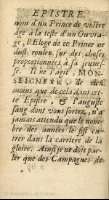 EPISTRE.
nom d'un Prince de vostre
âge à la teste d'un Ouvra-
ge, l'Eloge de ce Prince ne
doit rouler sur des choses
proportionnées à sa jeunes-
se. Il ne s'agit, MON-
SEIGNEUR, de
moins que de cela dans cet-
te Epistre, & l'auguste
sang dont vous sortez, n'a
jamais attendu que le nom-
bre des années le fist en-
trer dans la carriere de la
gloire. Ainsi je ne doit par-
ler que des Campagnes de-